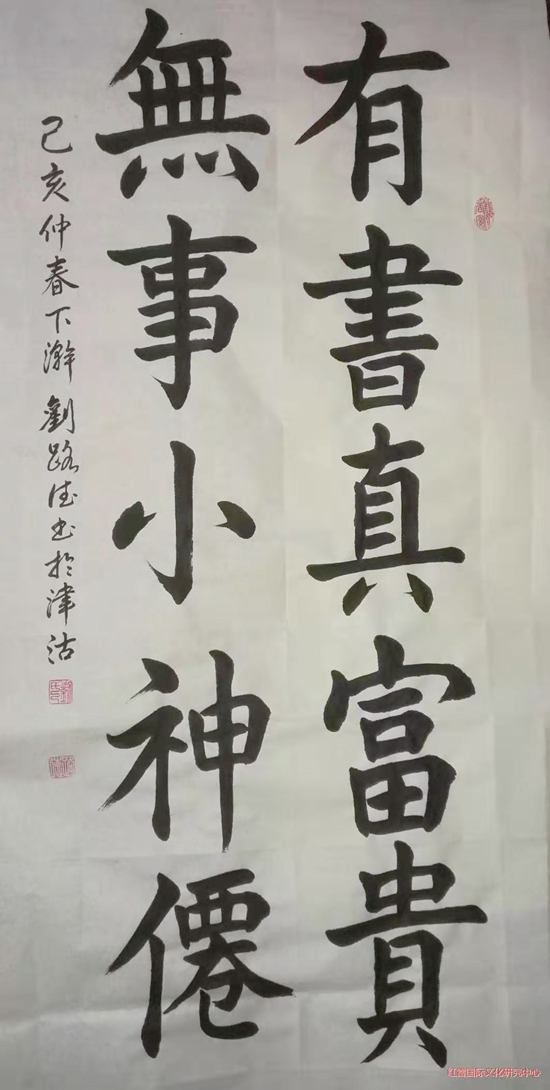 有書真富貴
無事小神僊
己亥仲春下澣劉路德书於津沽
红鑫国际文化研究中心